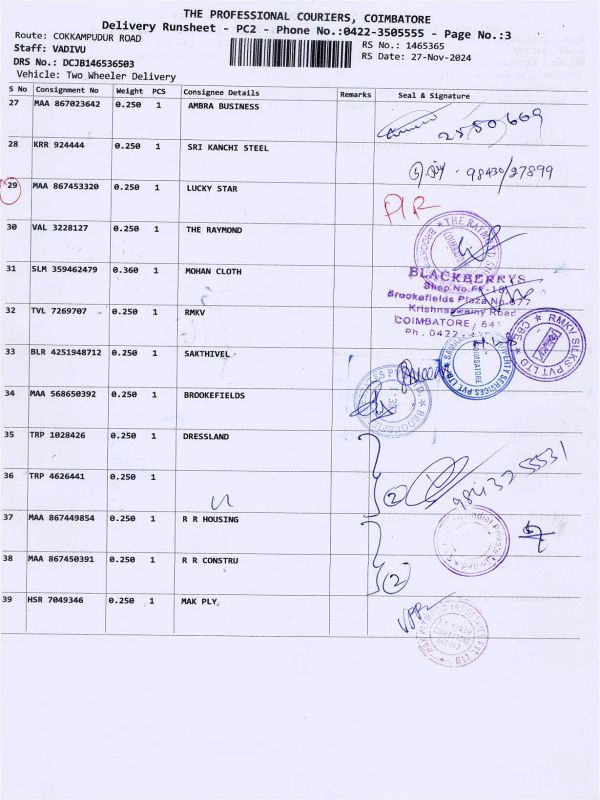 THE PROFESSIONAL COURIERS, COIMBATORE
Delivery Runsheet - PC2 - Phone No.:0422-3505555 - Page No.:3
Route: COKKAMPUDUR ROAD
RS No.: 1465365
Staff: VADIVU
RS Date: 27-Nov-2024
DRS No.: DCJB146536503
Vehicle: Two Wheeler Delivery
S No Consignment No Weight PCS Consignee Details Remarks Seal & Signature
27 MAA 867023642 0.250 1 AMBRA BUSINESS
2550669
28 KRR 924444 0.250 1 SRI KANCHI STEEL
98430/27899
29 MAA 867453320 0.250 1 LUCKY STAR
PIR
30 VAL 3228127 0.250 1 THE RAYMOND
THE RAYMOND
31 SLM 359462479 0.360 1 MOHAN CLOTH
BLACKBERRYS
Shop No.FF
Brookefields Plaza No.
Krishnaswamy Road
COIMBATORE
Ph. 0422
32 TVL 7269707 0.250 1 RMKV
RMKV SILKS PVT LTD
CBE
33 BLR 4251948712 0.250 1 SAKTHIVEL
PROPERTY SERVICES PVT. LTD.
COIMBATORE
34 MAA 568650392 0.250 1 BROOKEFIELDS
35 TRP 1028426 0.250 1 DRESSLAND
2
9843255531
36 TRP 4626441 0.250 1
37 MAA 867449854 0.250 1 R R HOUSING
Private Limited
38 MAA 867450391 0.250 1 R R CONSTRU
2
39 HSR 7049346 0.250 1 MAK PLY